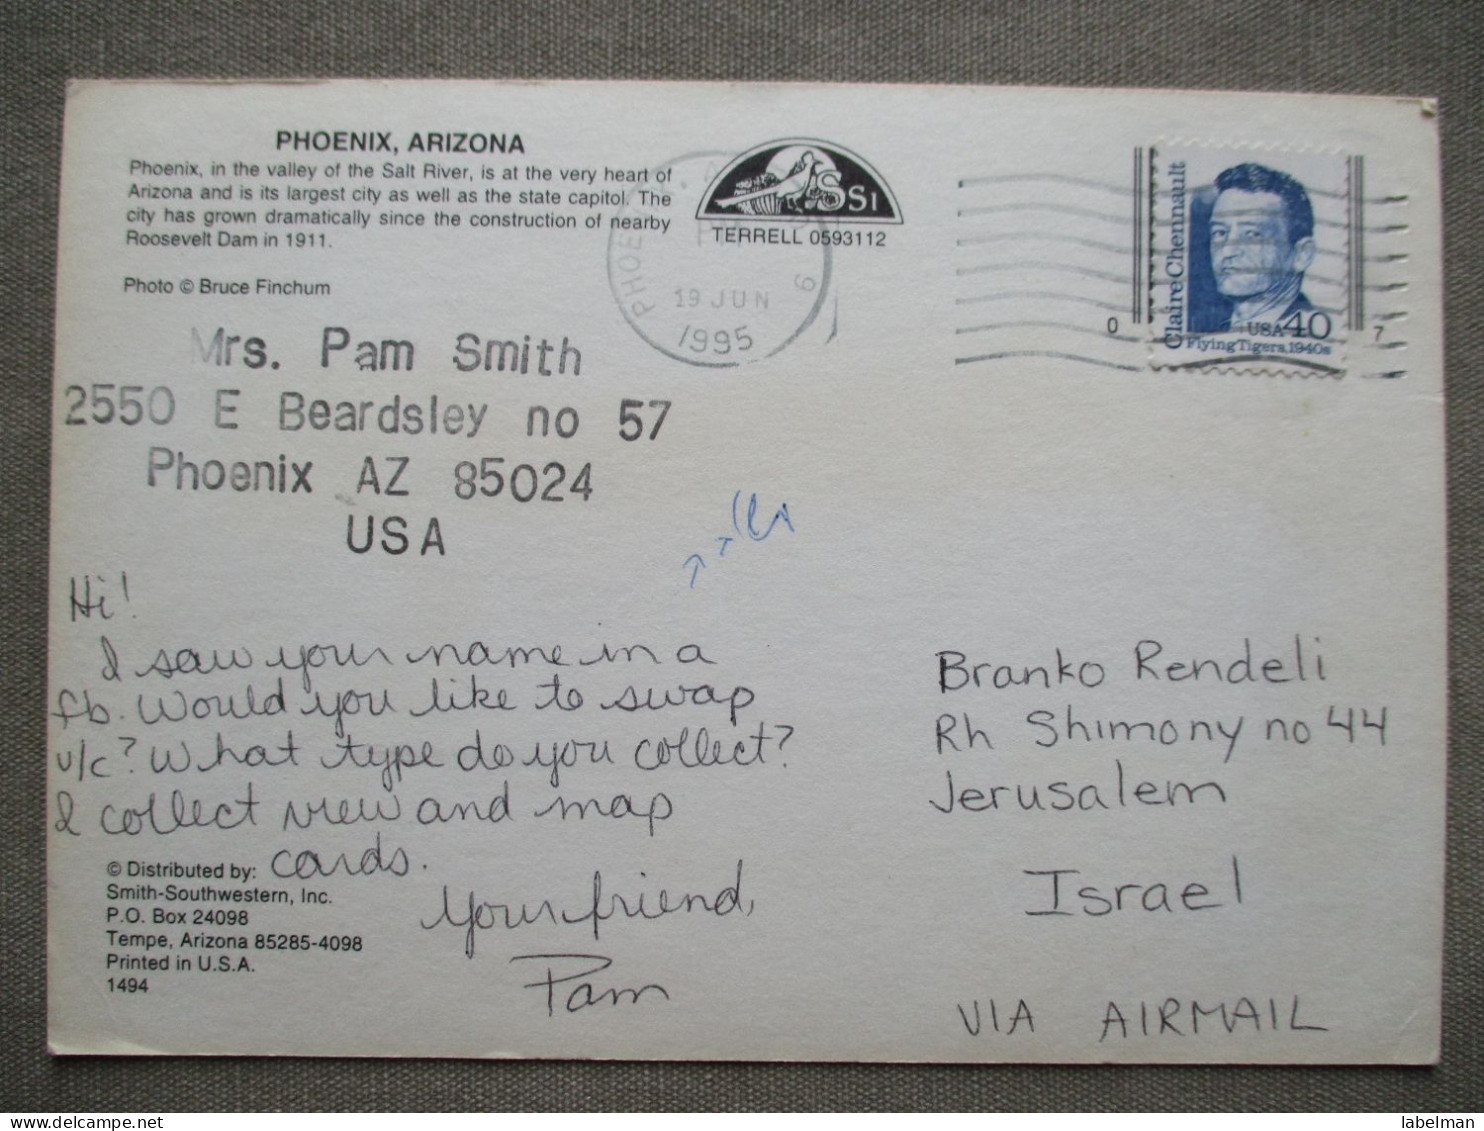 PHOENIX, ARIZONA
Phoenix, in the valley of the Salt River, is at the very heart of
Arizona and is its largest city as well as the state capitol. The
city has grown dramatically since the construction of nearby
Roosevelt Dam in 1911.
Photo © Bruce Finchum
SSI
TERRELL 0593112
PHOENIX, A
PM
19 JUN
1995
6
Claire Chennault
USA 40
Flying Tigers, 1940s
0
7
Mrs. Pam Smith
2550 E Beardsley no 57
Phoenix AZ 85024
USA
Hi!
I saw your name in a
fb. Would you like to swap
v/c? What type do you collect?
I collect view and map
cards.
Your friend,
Pam
© Distributed by:
Smith-Southwestern, Inc.
P.O. Box 24098
Tempe, Arizona 85285-4098
Printed in U.S.A.
1494
Branko Rendeli
Rh Shimony no 44
Jerusalem
Israel
VIA AIRMAIL
labelman